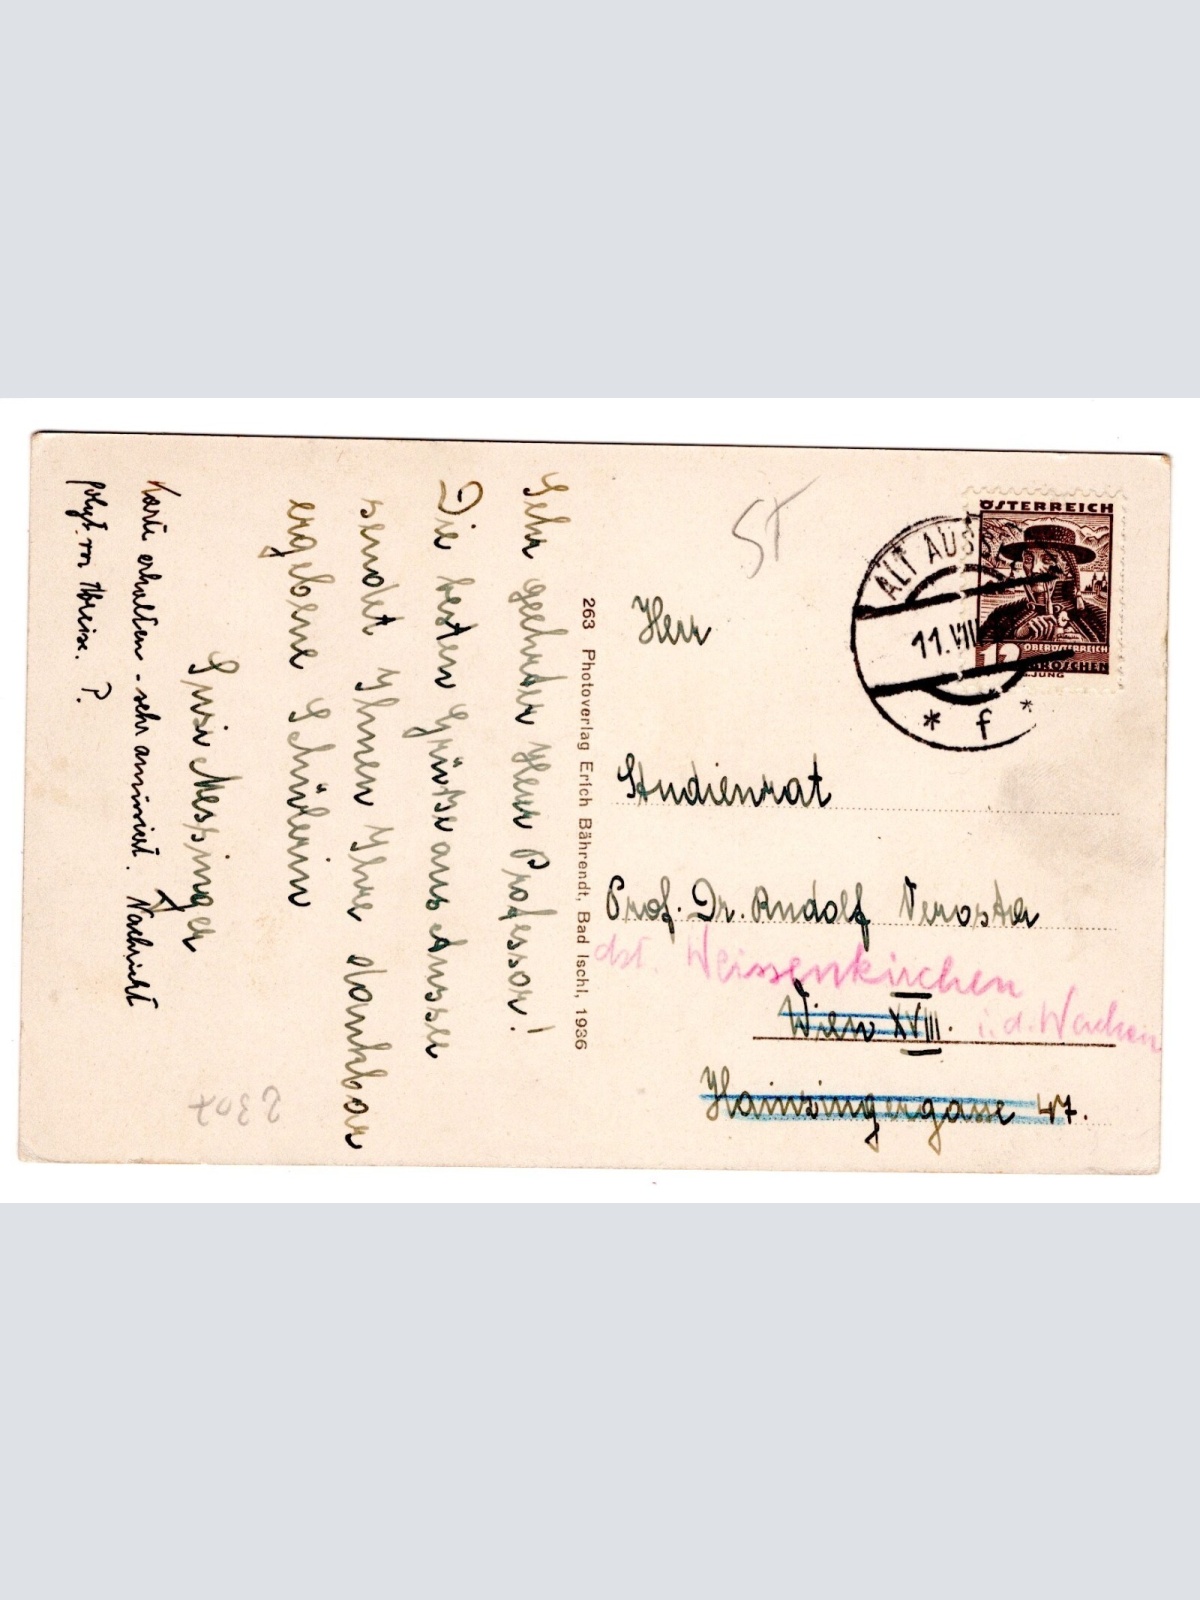 Sehr geehrter Herr Professor!
Die besten Grüsse aus Aussee
sendet Ihnen Ihre dankbar
ergebene Schülerin
Susi Messinger
Karte erhalten - sehr amüsiert. Nachricht
folgt von Abreise. P.
263 Photoverlag Erich Bährendt, Bad Ischl, 1936
ST
ÖSTERREICH
OBERÖSTERREICH
12 GROSCHEN
JUNG
ALT AUS
11.VIII
* f *
Herr
Studienrat
Prof. Dr. Rudolf
dzt. Weissenkirchen
Wien XVIII.
i. d. Wachau
Hainzingergasse 47.
2307